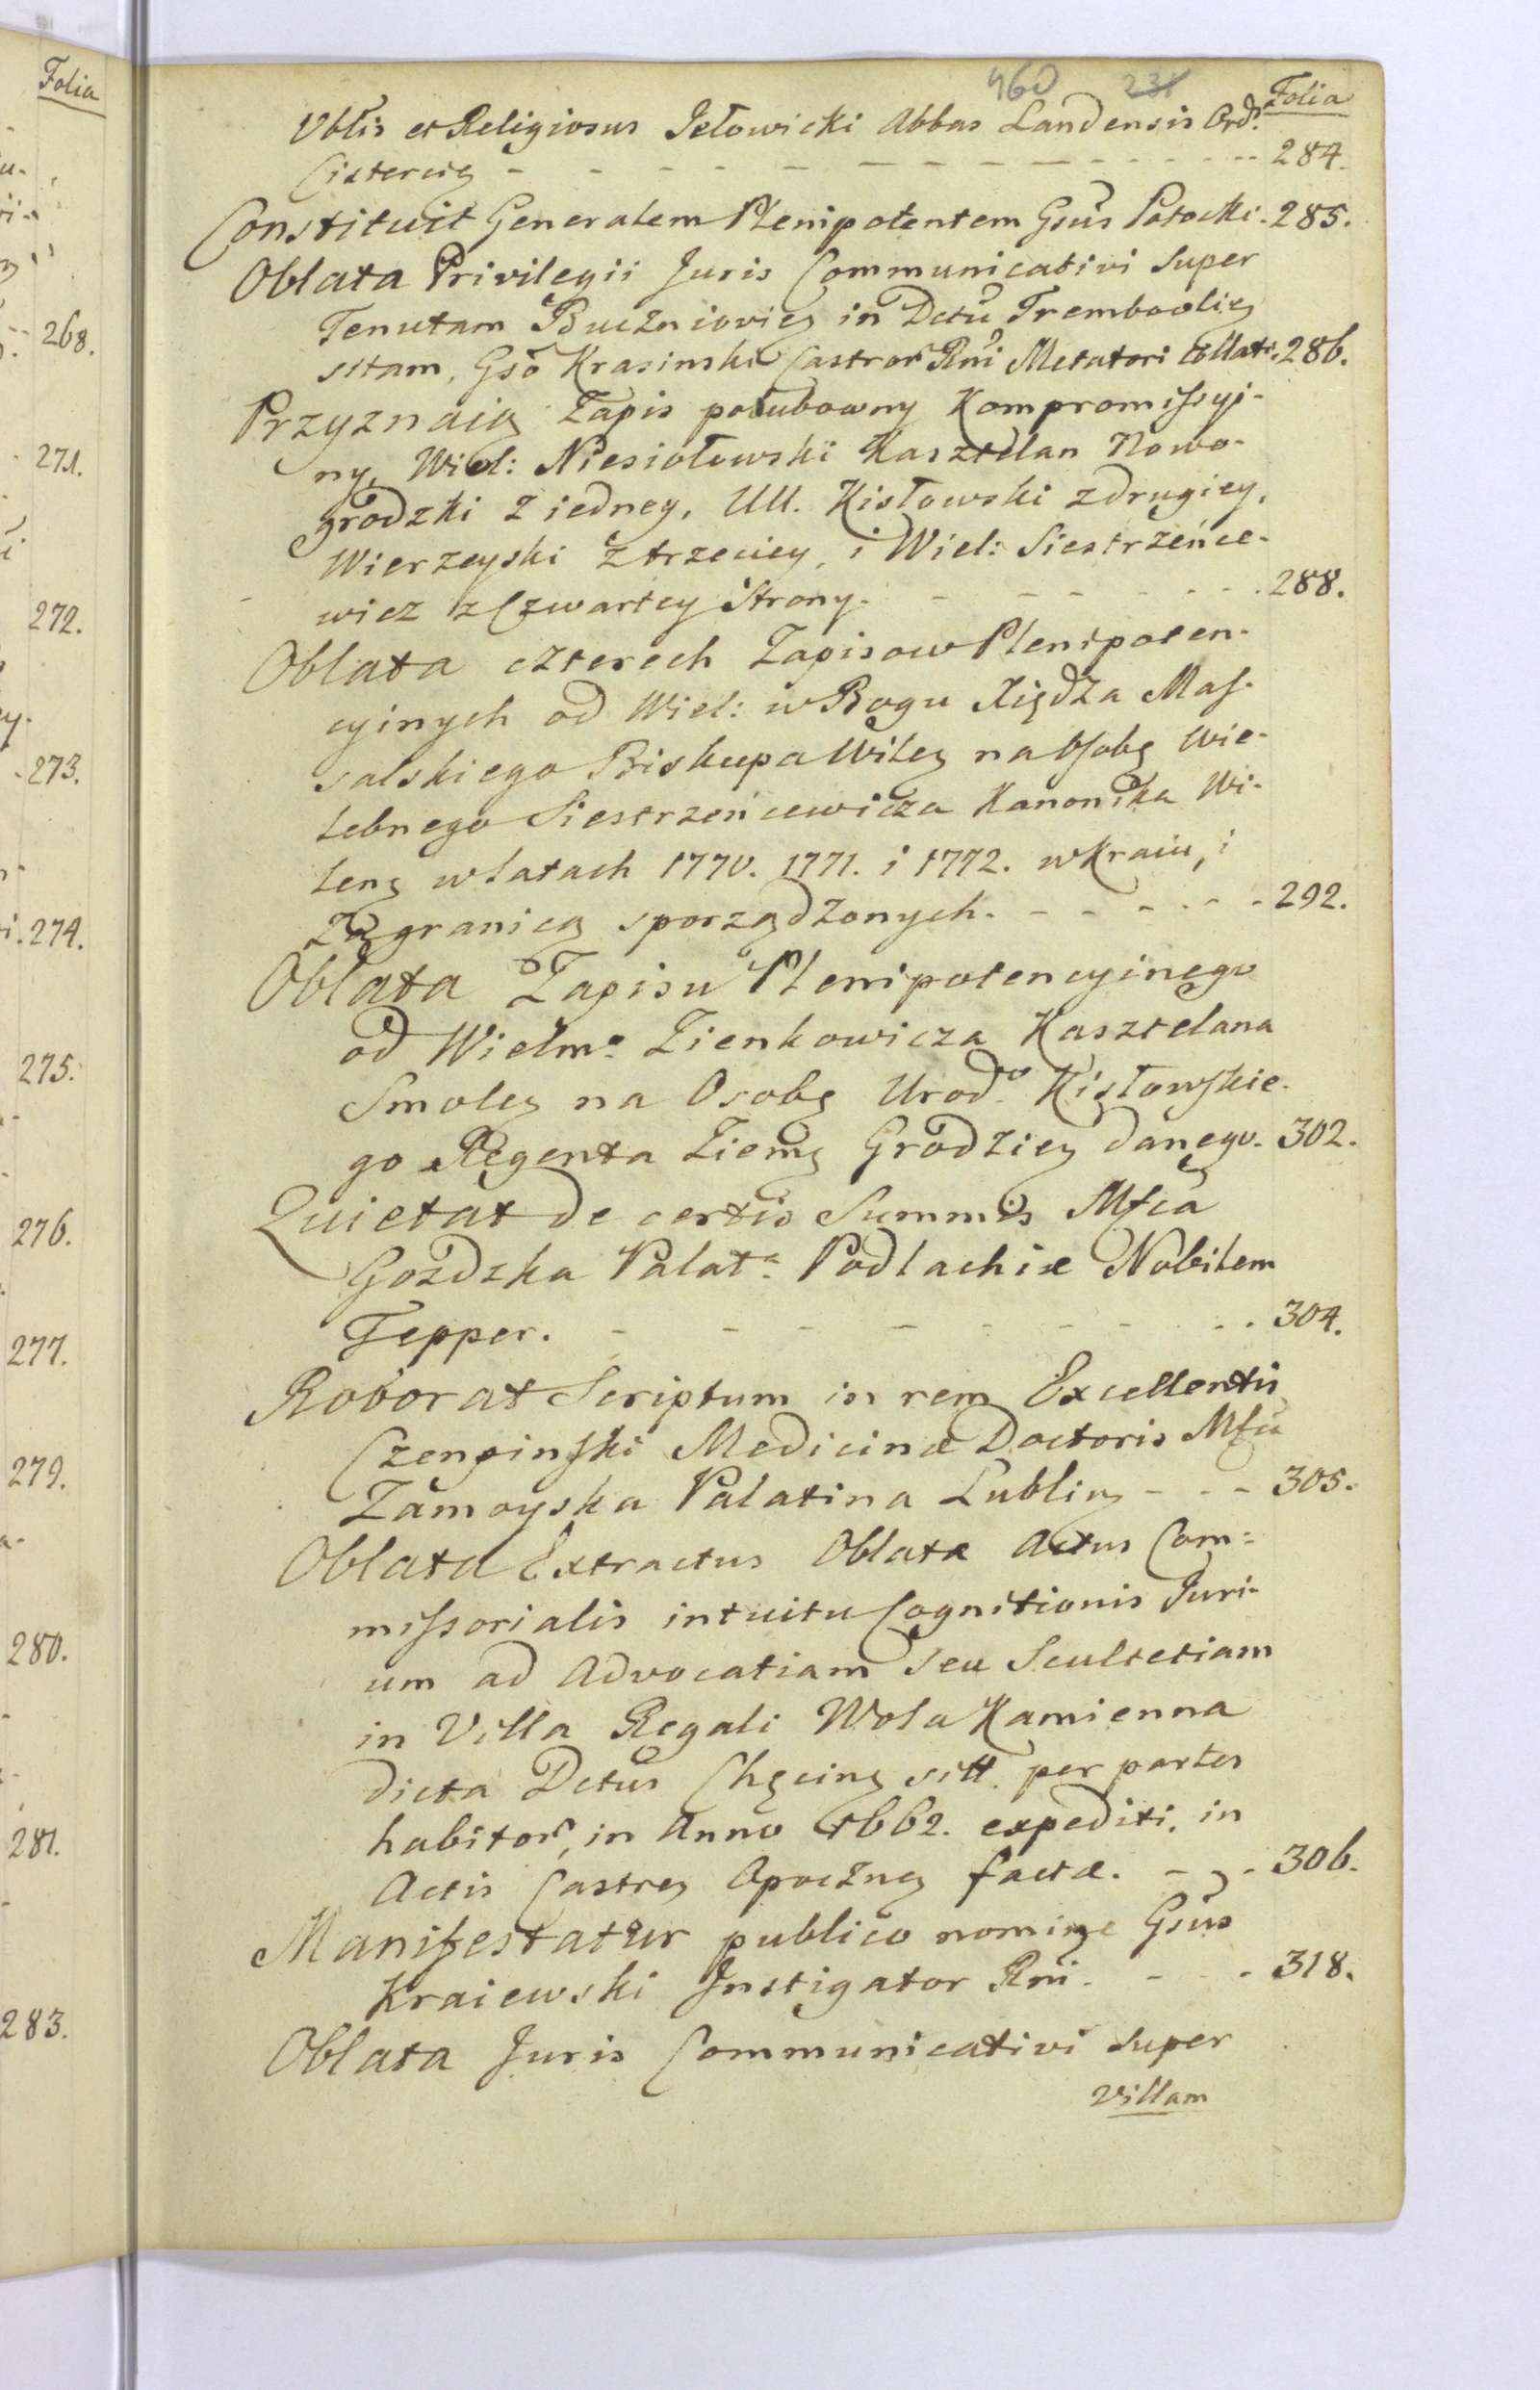 Folia
268.
271.
272.
273.
274.
275.
276.
277.
279.
280.
281.
283.
460 231
Folia
Vblis et Religiosus Jełowicki Abbas Landensis Ord:
Cistercię - - - - - - - - - - - - 284.
Constituit Generalem Plenipotentem Gsus Potocki. 285.
Oblata Privilegii Juris Communicativi super
Tenutam Buczniovieę in Dctu Trembowlię
sitam, Gso Krasinski Castror Rni Metatori Collati. 286.
Przyznaią Zapis polubowny Kompromissyi-
ny, Wiel: Niesiołowski Kasztelan Nowo-
grodzki z iedney, UU. Kisłowski z drugiey,
Wierzeyski z trzeciey, i Wiel: Siestrzeńce-
wicz z Czwartey Strony. - - - - - - 288.
Oblata czterech Zapisow Plenipoten-
cyinych od Wiel: w Bogu Xiędza Mas-
salskiego Biskupa Wileę na Osobę Wie-
lebnego Siestrzeńcewicza Kanonika Wi-
leng w latach 1770. 1771. i 1772. w Kraiu, i
za granicą sporządzonych. - - - - - - 292.
Oblata Zapisu Plenipotencyinego
od Wielmo: Zienkowicza Kasztelana
Smoleę na Osobę Urodo: Kisłowskie-
go Regenta Ziemę Grodzieę danego. 302.
Quietat de certis Summis Mfca
Gozdzka Palata: Podlachiæ Nobilem
Tepper. - - - - - - - - 304.
Roborat Scriptum in rem Excellentis
Czenpinski Medicinæ Doctoris Mfca
Zamoyska Palatina Lublinę - - - 305.
Oblata Extractus Oblatæ Actus Com=
missorialis intuitu Cognitionis Juri-
um ad Advocatiam seu Scultetiam
in Villa Regali Wola Kamienna
dicta Dctus Chęcinę sitt. per partes
habitor, in Anno 1662. expediti, in
Actis Castreę Opocznę factæ. - - - 306.
Manifestatur publico nomine Gsus
Kraiewski Instigator Rni. - - - 318.
Oblata Juris Communicativi super
Villam